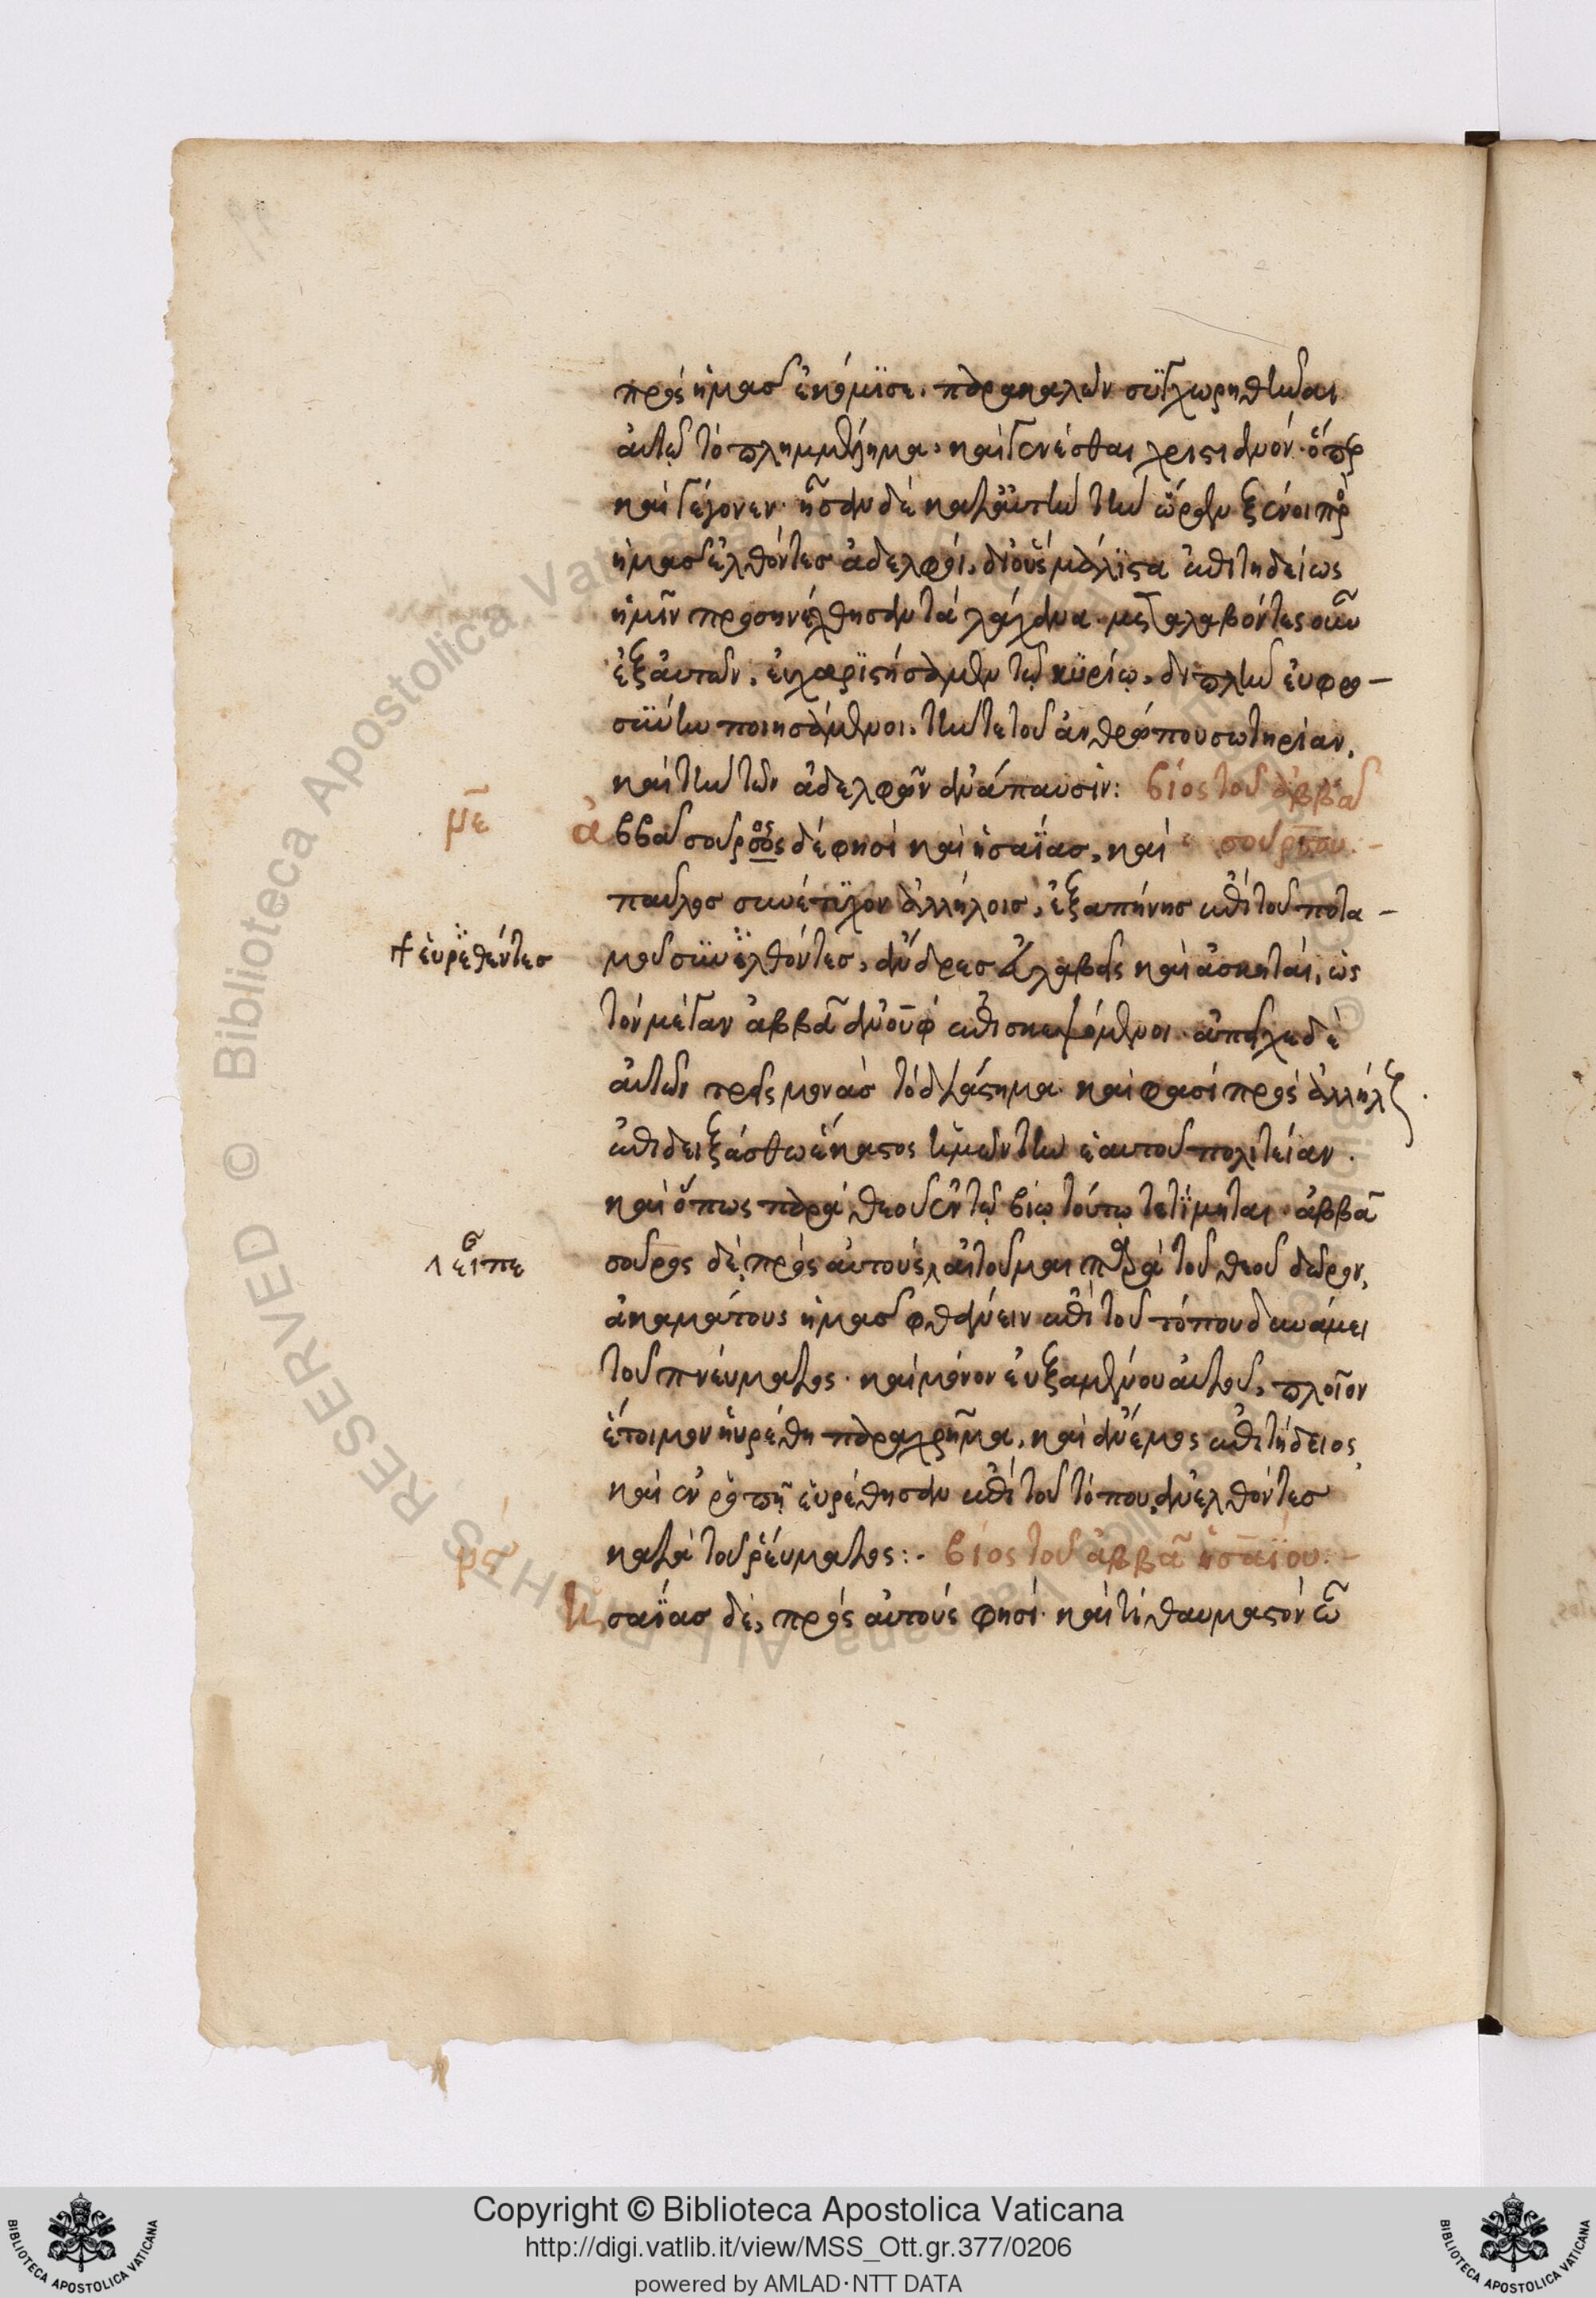 πρὸς ἡμᾶς ἐκόμϊσε. παρακαλῶν συγχωρηθῆναι
ἀυτῷ τὸ πλημμέλημα, καὶ γενέσθαι χριστιανόν. ὅπερ
καὶ γέγονεν. ἦσαν δὲ κατ' ἀυτὴν τὴν ὥραν ξένοι πρὸς
ἡμᾶς ἐλθόντες ἀδελφοὶ, δι' οὓς μάλϊστα ἐπιτηδείως
ἡμῖν προσηνέχθησαν τὰ λάχανα. μεταλαβόντες οὖν
ἐξ ἀυτῶν, ἐυχαρϊστήσαμεν τῷ κϋρίῳ, διπλῆν ἐυφρο-
σϋνην ποιησάμενοι. τήν τε τοῦ ἀνθρώπου σωτηρίαν,
καὶ τὴν τῶν ἀδελφῶν ἀνάπαυσιν: βίος τοῦ ἀββᾶ
με ἀββᾶς σοῦρος δέ φησι καὶ ἡσαΐας, καὶ σούρου.-
παῦλος συνέτυχον ἀλλήλοις, ἐξαπήνης ἐπὶ τοῦ ποτα-
+ ἑυρεθέντες
μοῦ συνελθόντες, ἄνδρες ἐυλαβεῖς καὶ ἀσκηταὶ, ὡς
τὸν μέγαν ἀββᾶ ἀνοὺφ ἐπισκεψόμενοι. ἀπεῖχε δὲ
ἀυτῶν τρεῖς μονὰς τὸ διάστημα. καὶ φασὶ πρὸς ἀλλήλους
ἐπιδειξάσθω ἕκαστος ἡμῶν τὴν ἑαυτοῦ πολιτείαν.
καὶ ὅπως παρὰ θεοῦ ἐν τῷ βίῳ τούτῳ τετίμηται. ἀββᾶ
εἶπε
σοῦρος δὲ, πρὸς ἀυτοὺς, ἀιτοῦμαι παρὰ τοῦ θεοῦ δῶρον,
ἀκαμάτους ἡμᾶς φθάνειν ἐπὶ τοῦ τόπου δυνάμει
τοῦ πνέυματος. καὶ μόνον ἐυξαμένου ἀυτοῦ, πλοῖον
ἕτοιμον ἡυρέθη παραχρῆμα, καὶ ἄνεμος ἐπιτήδειος,
καὶ ἐν ῥοπῇ ἑυρέθησαν ἐπὶ τοῦ τόπου, ἀνελθόντες
κατὰ τοῦ ῥέυματος:. βίος τοῦ ἀββᾶ ἡσαΐου.-
μϛ ἡσαΐας δὲ, πρὸς ἀυτούς φησι. καὶ τί θαυμαστὸν ὦ
RIGHTS RESERVED © Biblioteca Apostolica Vaticana
Copyright © Biblioteca Apostolica Vaticana
http://digi.vatlib.it/view/MSS_Ott.gr.377/0206
powered by AMLAD·NTT DATA
BIBLIOTECA APOSTOLICA VATICANA
BIBLIOTECA APOSTOLICA VATICANA